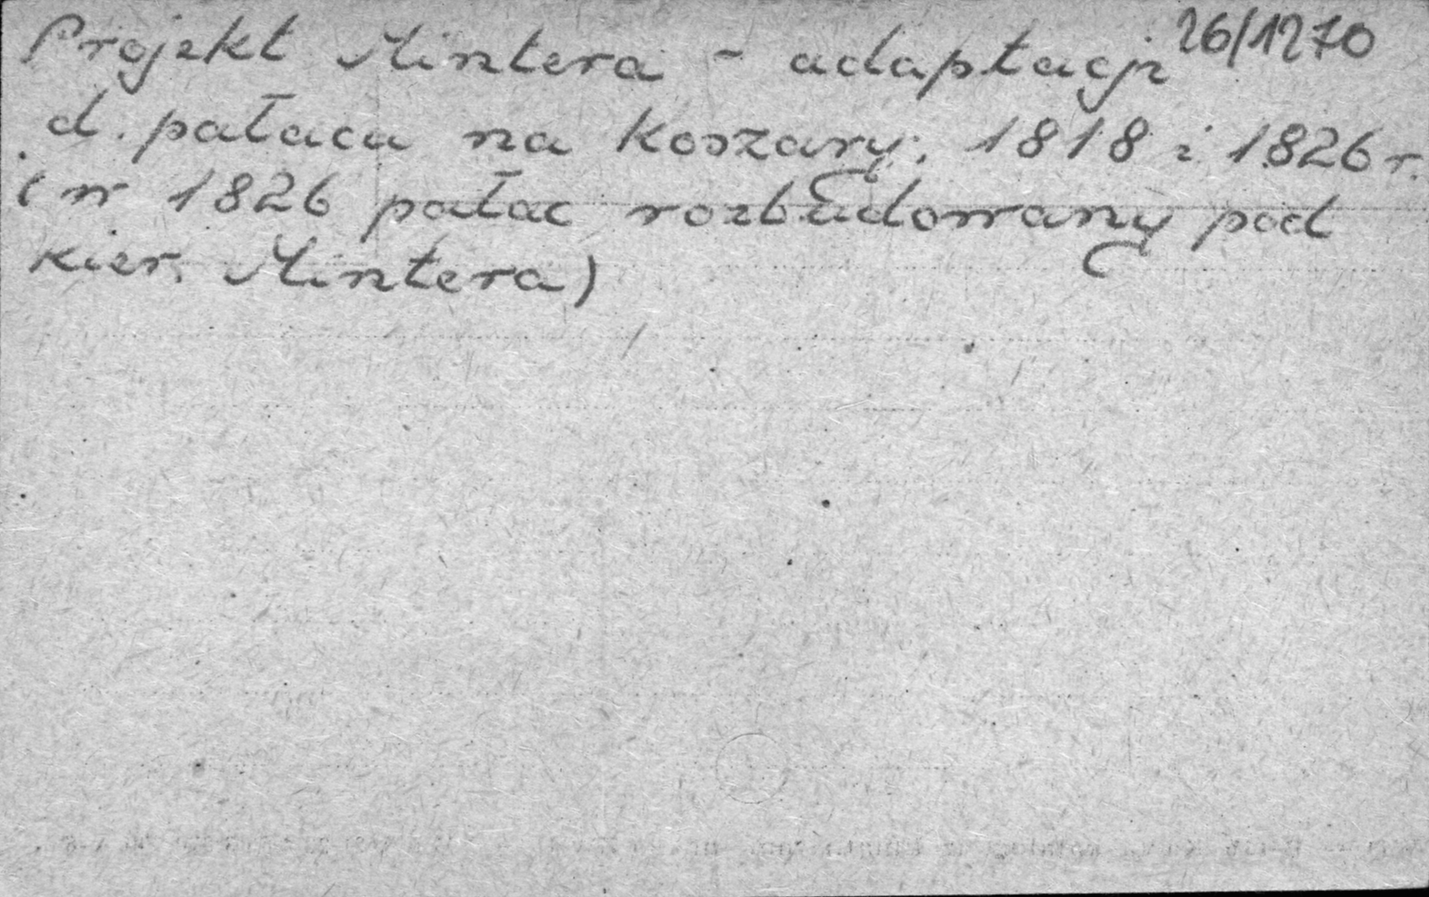 26/1270
Projekt Mintera - adaptacji
d. pałacu na koszary; 1818 i 1826 r.
(w 1826 pałac rozbudowany pod
kier. Mintera)